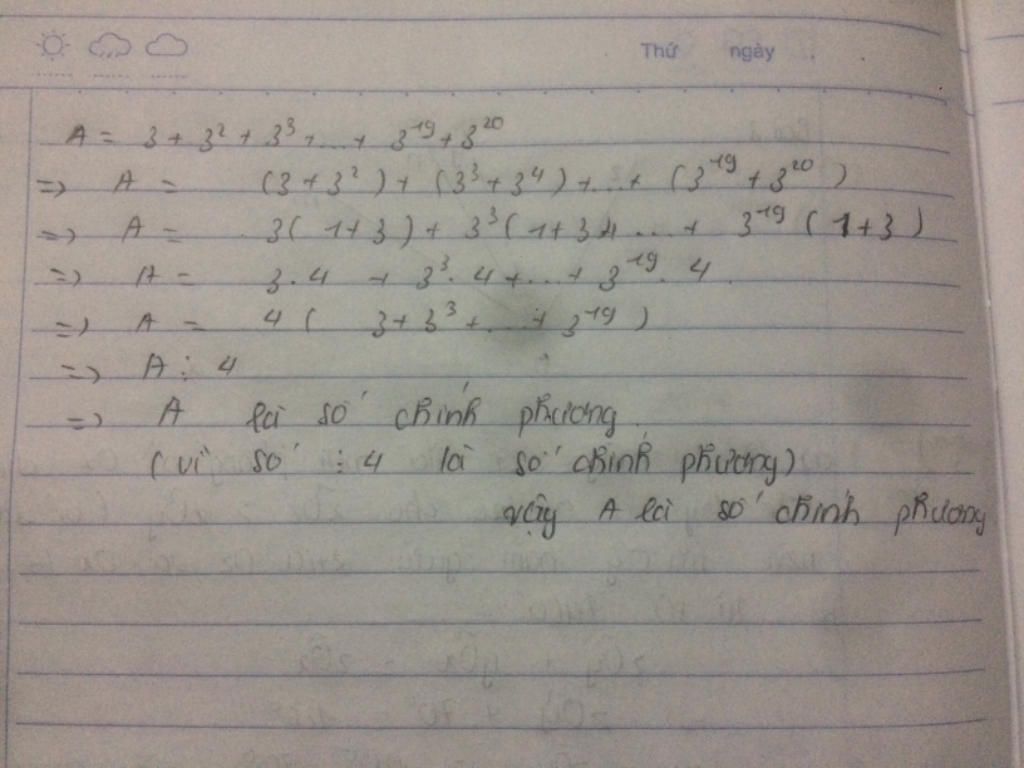 Thứ ngày
A = 3 + 3² + 3³ + ... + 3¹⁹ + 3²⁰
=> A = (3 + 3²) + (3³ + 3⁴) + ... + (3¹⁹ + 3²⁰)
=> A = 3(1+3) + 3³(1+3) + ... + 3¹⁹(1+3)
=> A = 3.4 + 3³.4 + ... + 3¹⁹.4
=> A = 4(3 + 3³ + ... + 3¹⁹)
=> A ⋮ 4
=> A là số chính phương
(vì số ⋮ 4 là số chính phương)
vậy A là số chính phương